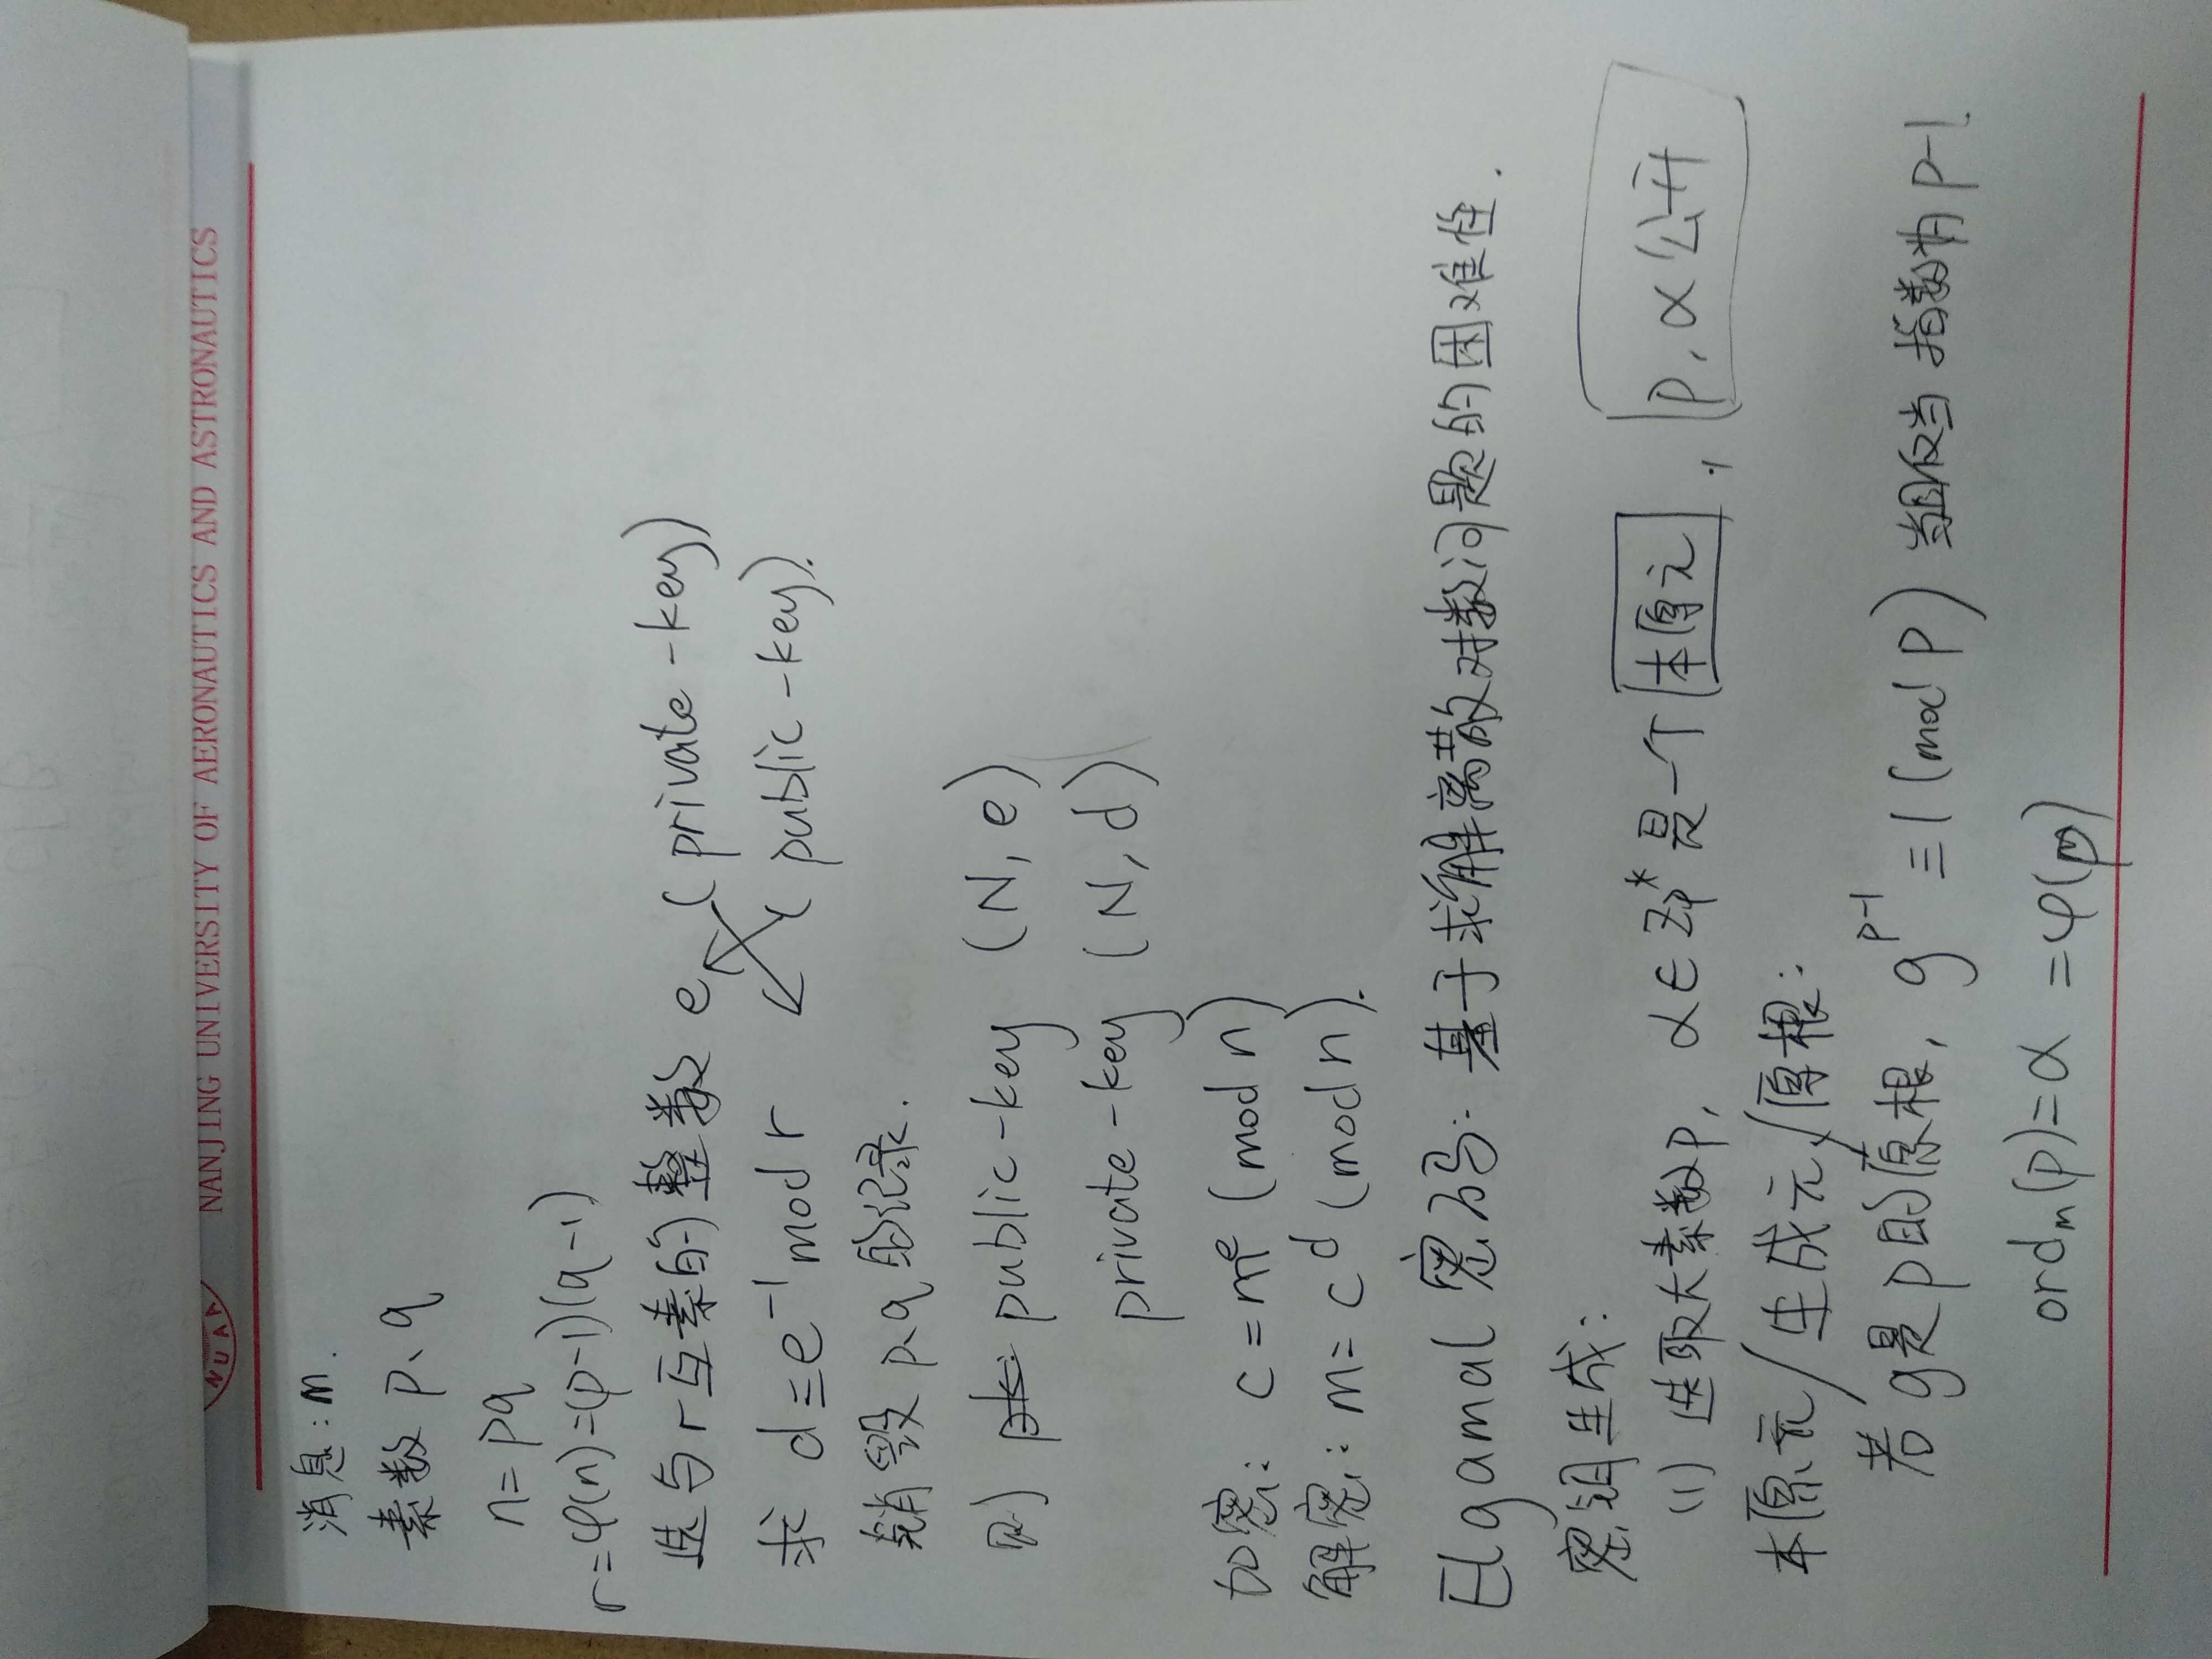 NUAA NANJING UNIVERSITY OF AERONAUTICS AND ASTRONAUTICS
消息：m.
素数 p、q
n=pq
r=φ(n)=(p-1)(q-1)
选与r互素的整数 e (private-key)
求 d≡e⁻¹ mod r (public-key).
销毁 p、q 的记录.
则 public-key (N, e)
private-key (N, d)
加密: c=mᵉ (mod n)
解密: m=cᵈ (mod n).
Elgamal 密码: 基于求解离散对数问题的困难性.
密钥生成:
(1) 选取大素数p, α∈Zp* 是一个 本原元, p, α 公开
本原元/生成元/原根:
若 g是p的原根, g^p-1 ≡1 (mod p) 当且仅当 指数为 p-1.
ordₘ(p)=α =φ(m)